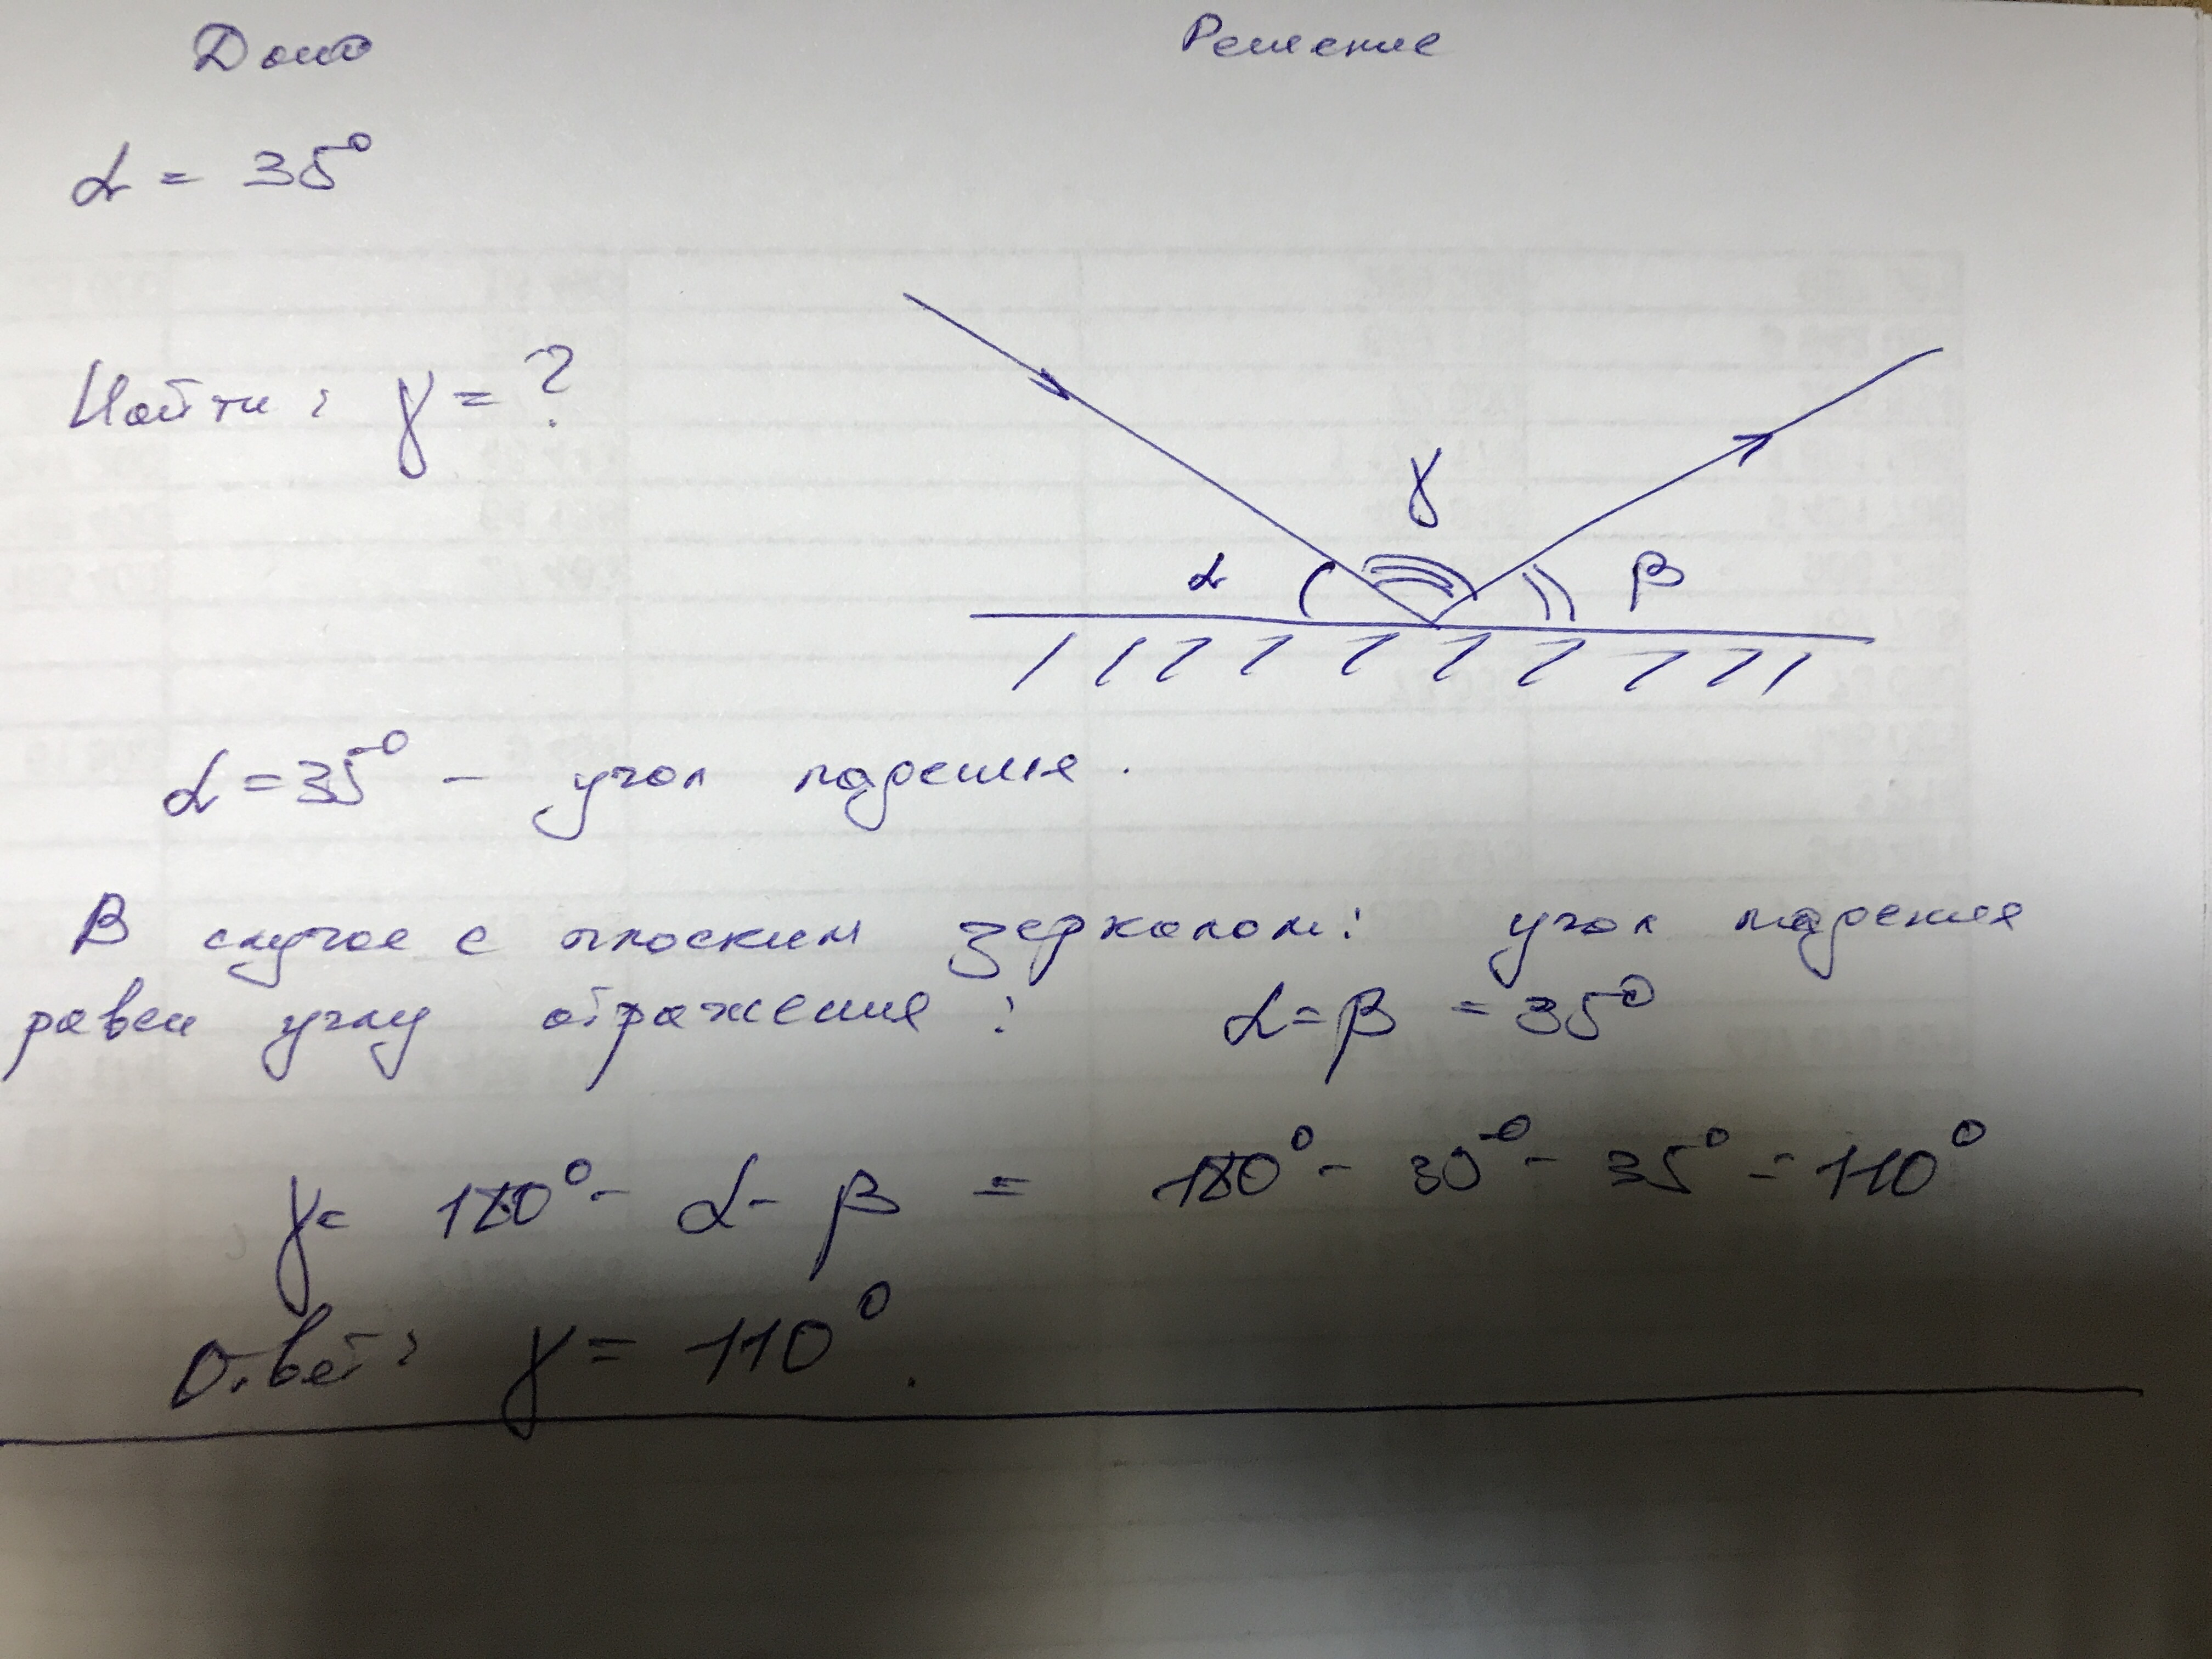 Дано
Решение
α = 35°
Найти: γ = ?
γ
α
β
α = 35° - угол падения.
В случае с плоским зеркалом: угол падения
равен углу отражения: α = β = 35°
γ = 180° - α - β = 180° - 30° - 35° = 110°
Ответ: γ = 110°.